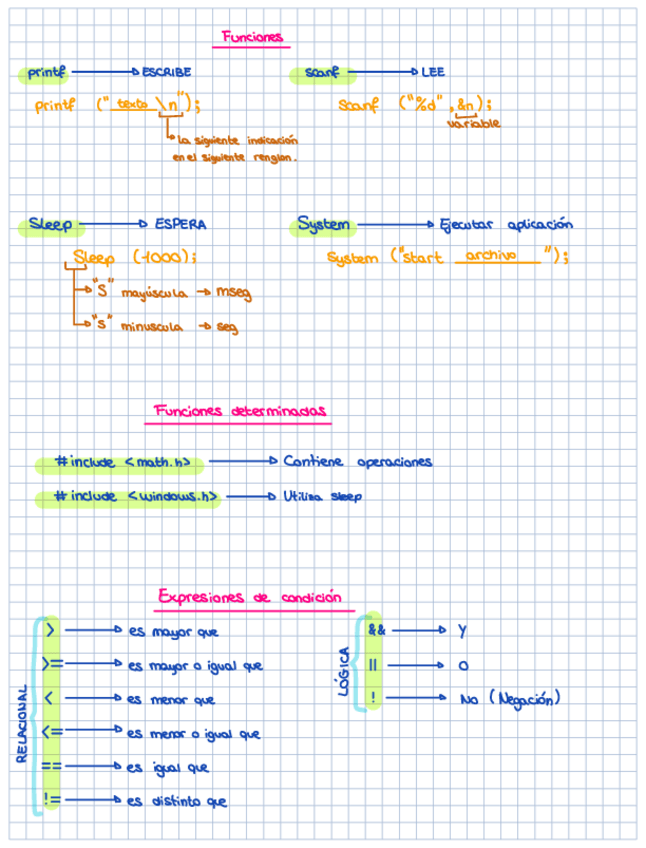 Funciones
printf → ESCRIBE
scanf → LEE
printf ("texto\n");
scanf ("%d",&n);
variable
la siguiente indicación
en el siguiente renglon.
Sleep → ESPERA
System → Ejecutar aplicación
Sleep (1000);
system ("start archivo ");
"S" mayúscula → mseg
"s" minuscula → seg
Funciones determinadas
#include <math.h> → Contiene operaciones
#include <windows.h> → Utiliza sleep
Expresiones de condición
RELACIONAL
> → es mayor que
>= → es mayor o igual que
< → es menor que
<= → es menor o igual que
== → es igual que
!= → es distinto que
LÓGICA
&& → Y
|| → O
! → No (Negación)